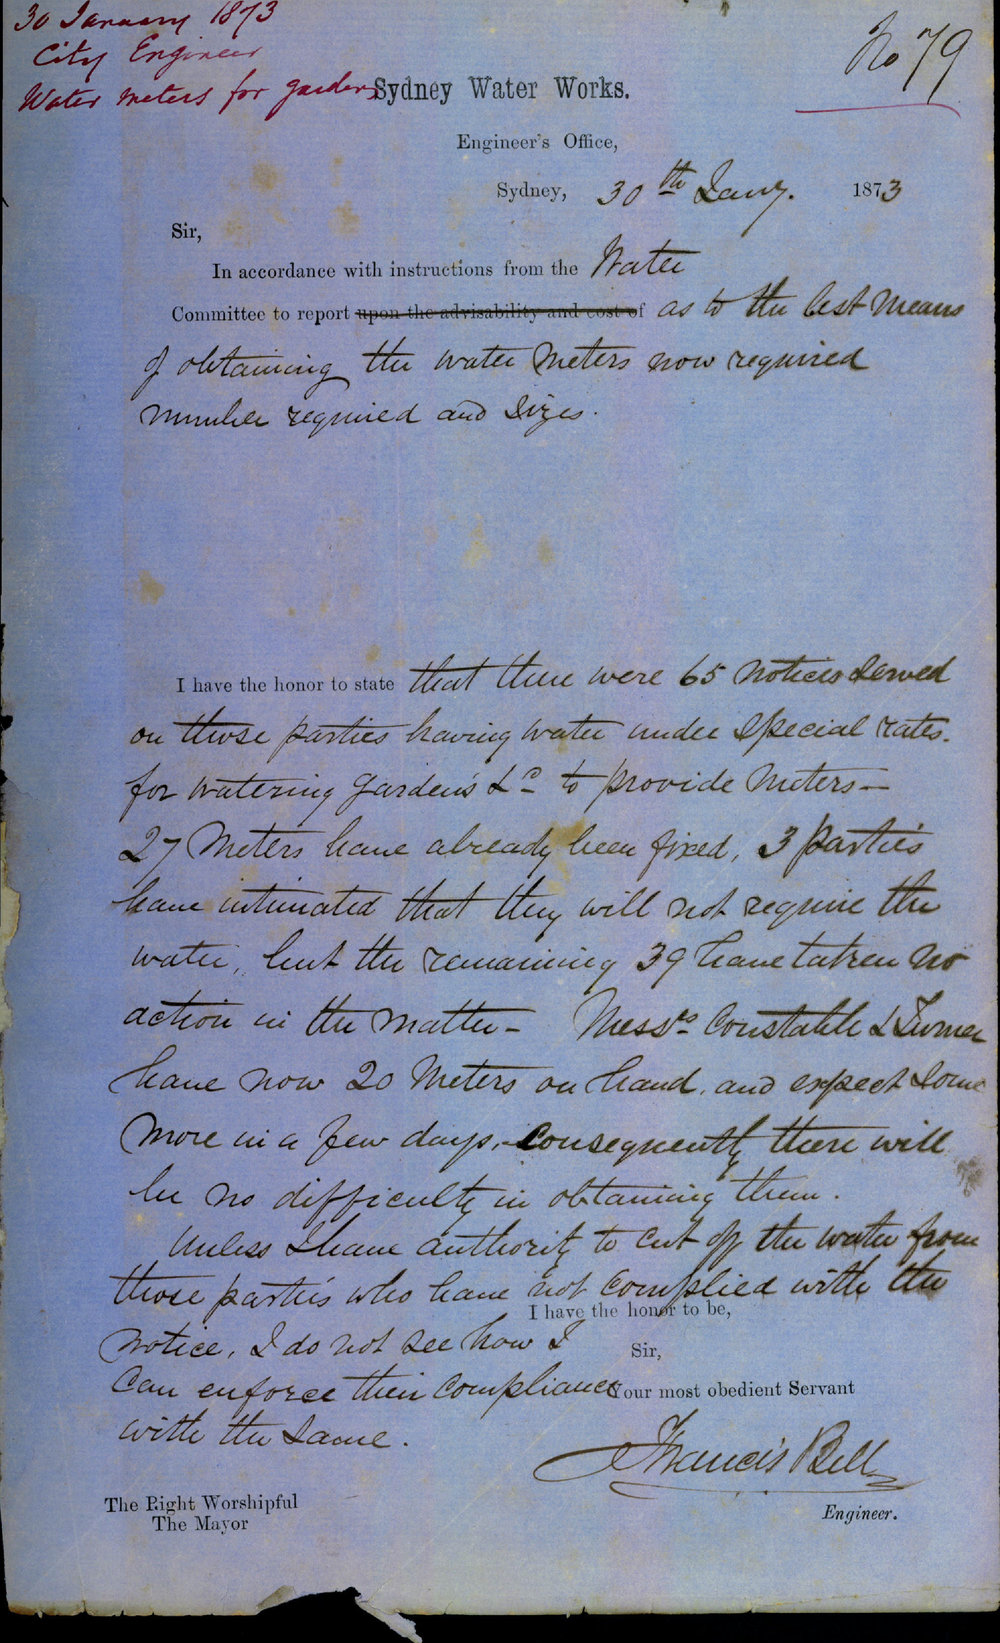 30 January 1873
City Engineer
Water meters for gardens
No 79
Sydney Water Works.
Engineer's Office,
Sydney, 30th Jany. 1873
Sir,
In accordance with instructions from the Water
Committee to report upon the advisability and cost of as to the best means
of obtaining the water meters now required
number required and sizes.
I have the honor to state that there were 65 notices served
on those parties having water under special rates.
for watering gardens &c to provide meters—
27 Meters have already been fixed, 3 parties
have intimated that they will not require the
water, but the remaining 39 have taken no
action in the matter— Messrs Constable & Turner
have now 20 Meters on hand, and expect some
more in a few days, consequently there will
be no difficulty in obtaining them.
Unless I have authority to cut off the water from
those parties who have not complied with the
I have the honor to be,
notice, I do not see how I
Sir,
can enforce their compliance
Your most obedient Servant
with the same.
Francis Bell
The Right Worshipful
The Mayor
Engineer.